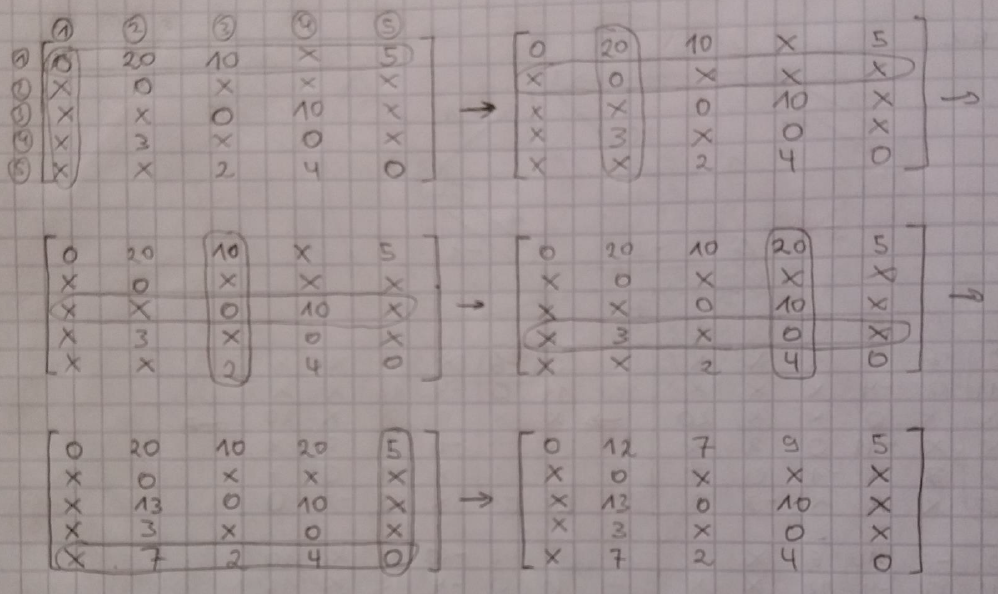 ① ② ③ ④ ⑤
① 0 20 10 x 5
② x 0 x x x
③ x x 0 10 x
④ x 3 x 0 x
⑤ x x 2 4 0
→
0 20 10 x 5
x 0 x x x
x x 0 10 x
x 3 x 0 x
x x 2 4 0
→
0 20 10 x 5
x 0 x x x
x x 0 10 x
x 3 x 0 x
x x 2 4 0
→
0 20 10 20 5
x 0 x x x
x x 0 10 x
x 3 x 0 x
x x 2 4 0
→
0 20 10 20 5
x 0 x x x
x 13 0 10 x
x 3 x 0 x
x 7 2 4 0
→
0 12 7 9 5
x 0 x x x
x 13 0 10 x
x 3 x 0 x
x 7 2 4 0